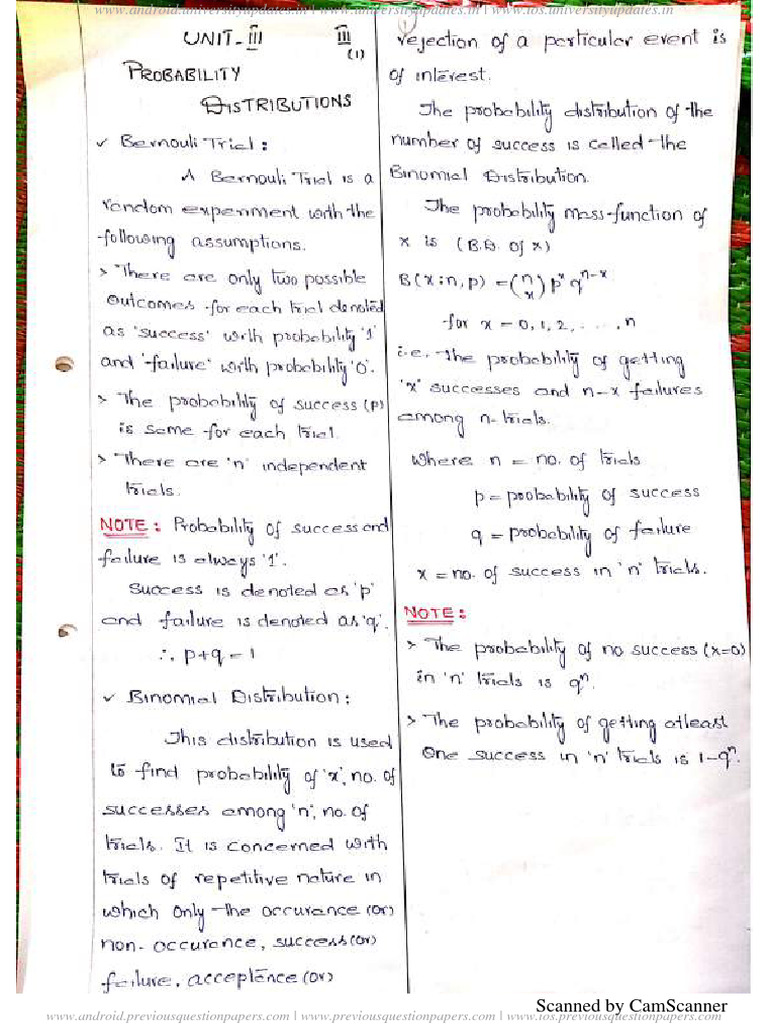 www.android.universityupdates.in | www.universityupdates.in | www.ios.universityupdates.in
UNIT-III
III
(1)
PROBABILITY
DISTRIBUTIONS
✓ Bernouli Trial :
A Bernouli Trial is a
random experiment with the
following assumptions.
> There are only two possible
outcomes for each trial denoted
as 'success' with probability '1'
and 'failure' with probability '0'.
> The probability of success (p)
is same for each trial.
> There are 'n' independent
trials.
NOTE : Probability of success and
failure is always '1'.
Success is denoted as 'p'
and failure is denoted as 'q'.
∴ p+q = 1
✓ Binomial Distribution :
This distribution is used
to find probability of 'x', no. of
successes among 'n', no. of
trials. It is concerned with
trials of repetitive nature in
which only the occurance (or)
non-occurance, success (or)
failure, acceptence (or)
1
rejection of a particular event is
of interest.
The probability distribution of the
number of success is called the
Binomial Distribution.
The probability mass-function of
x is (B.D. of x)
B(x; n, p) = (n x) p^x q^{n-x}
for x = 0, 1, 2, ...., n
i.e. the probability of getting
'x' successes and n-x failures
among n-trials.
where n = no. of trials
p = probability of success
q = probability of failure
x = no. of success in 'n' trials.
NOTE :
> The probability of no success (x=0)
in 'n' trials is q^n.
> The probability of getting atleast
one success in 'n' trials is 1-q^n.
Scanned by CamScanner
www.android.previousquestionpapers.com | www.previousquestionpapers.com | www.ios.previousquestionpapers.com